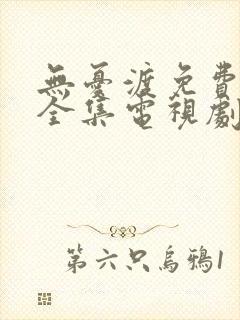 無憂渡免費
全集電視劇
第六只烏鴉1